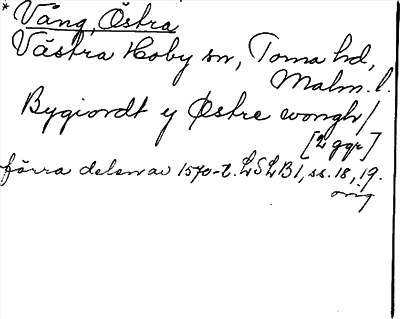 * Vång, Östra
Västra Hoby sn, Torna hd,
Malm. l.
Bygiordt y Østre wongh/
[2 ggr]
förra delen av 1570-t. LSLB1, ss. 18, 19.
orig